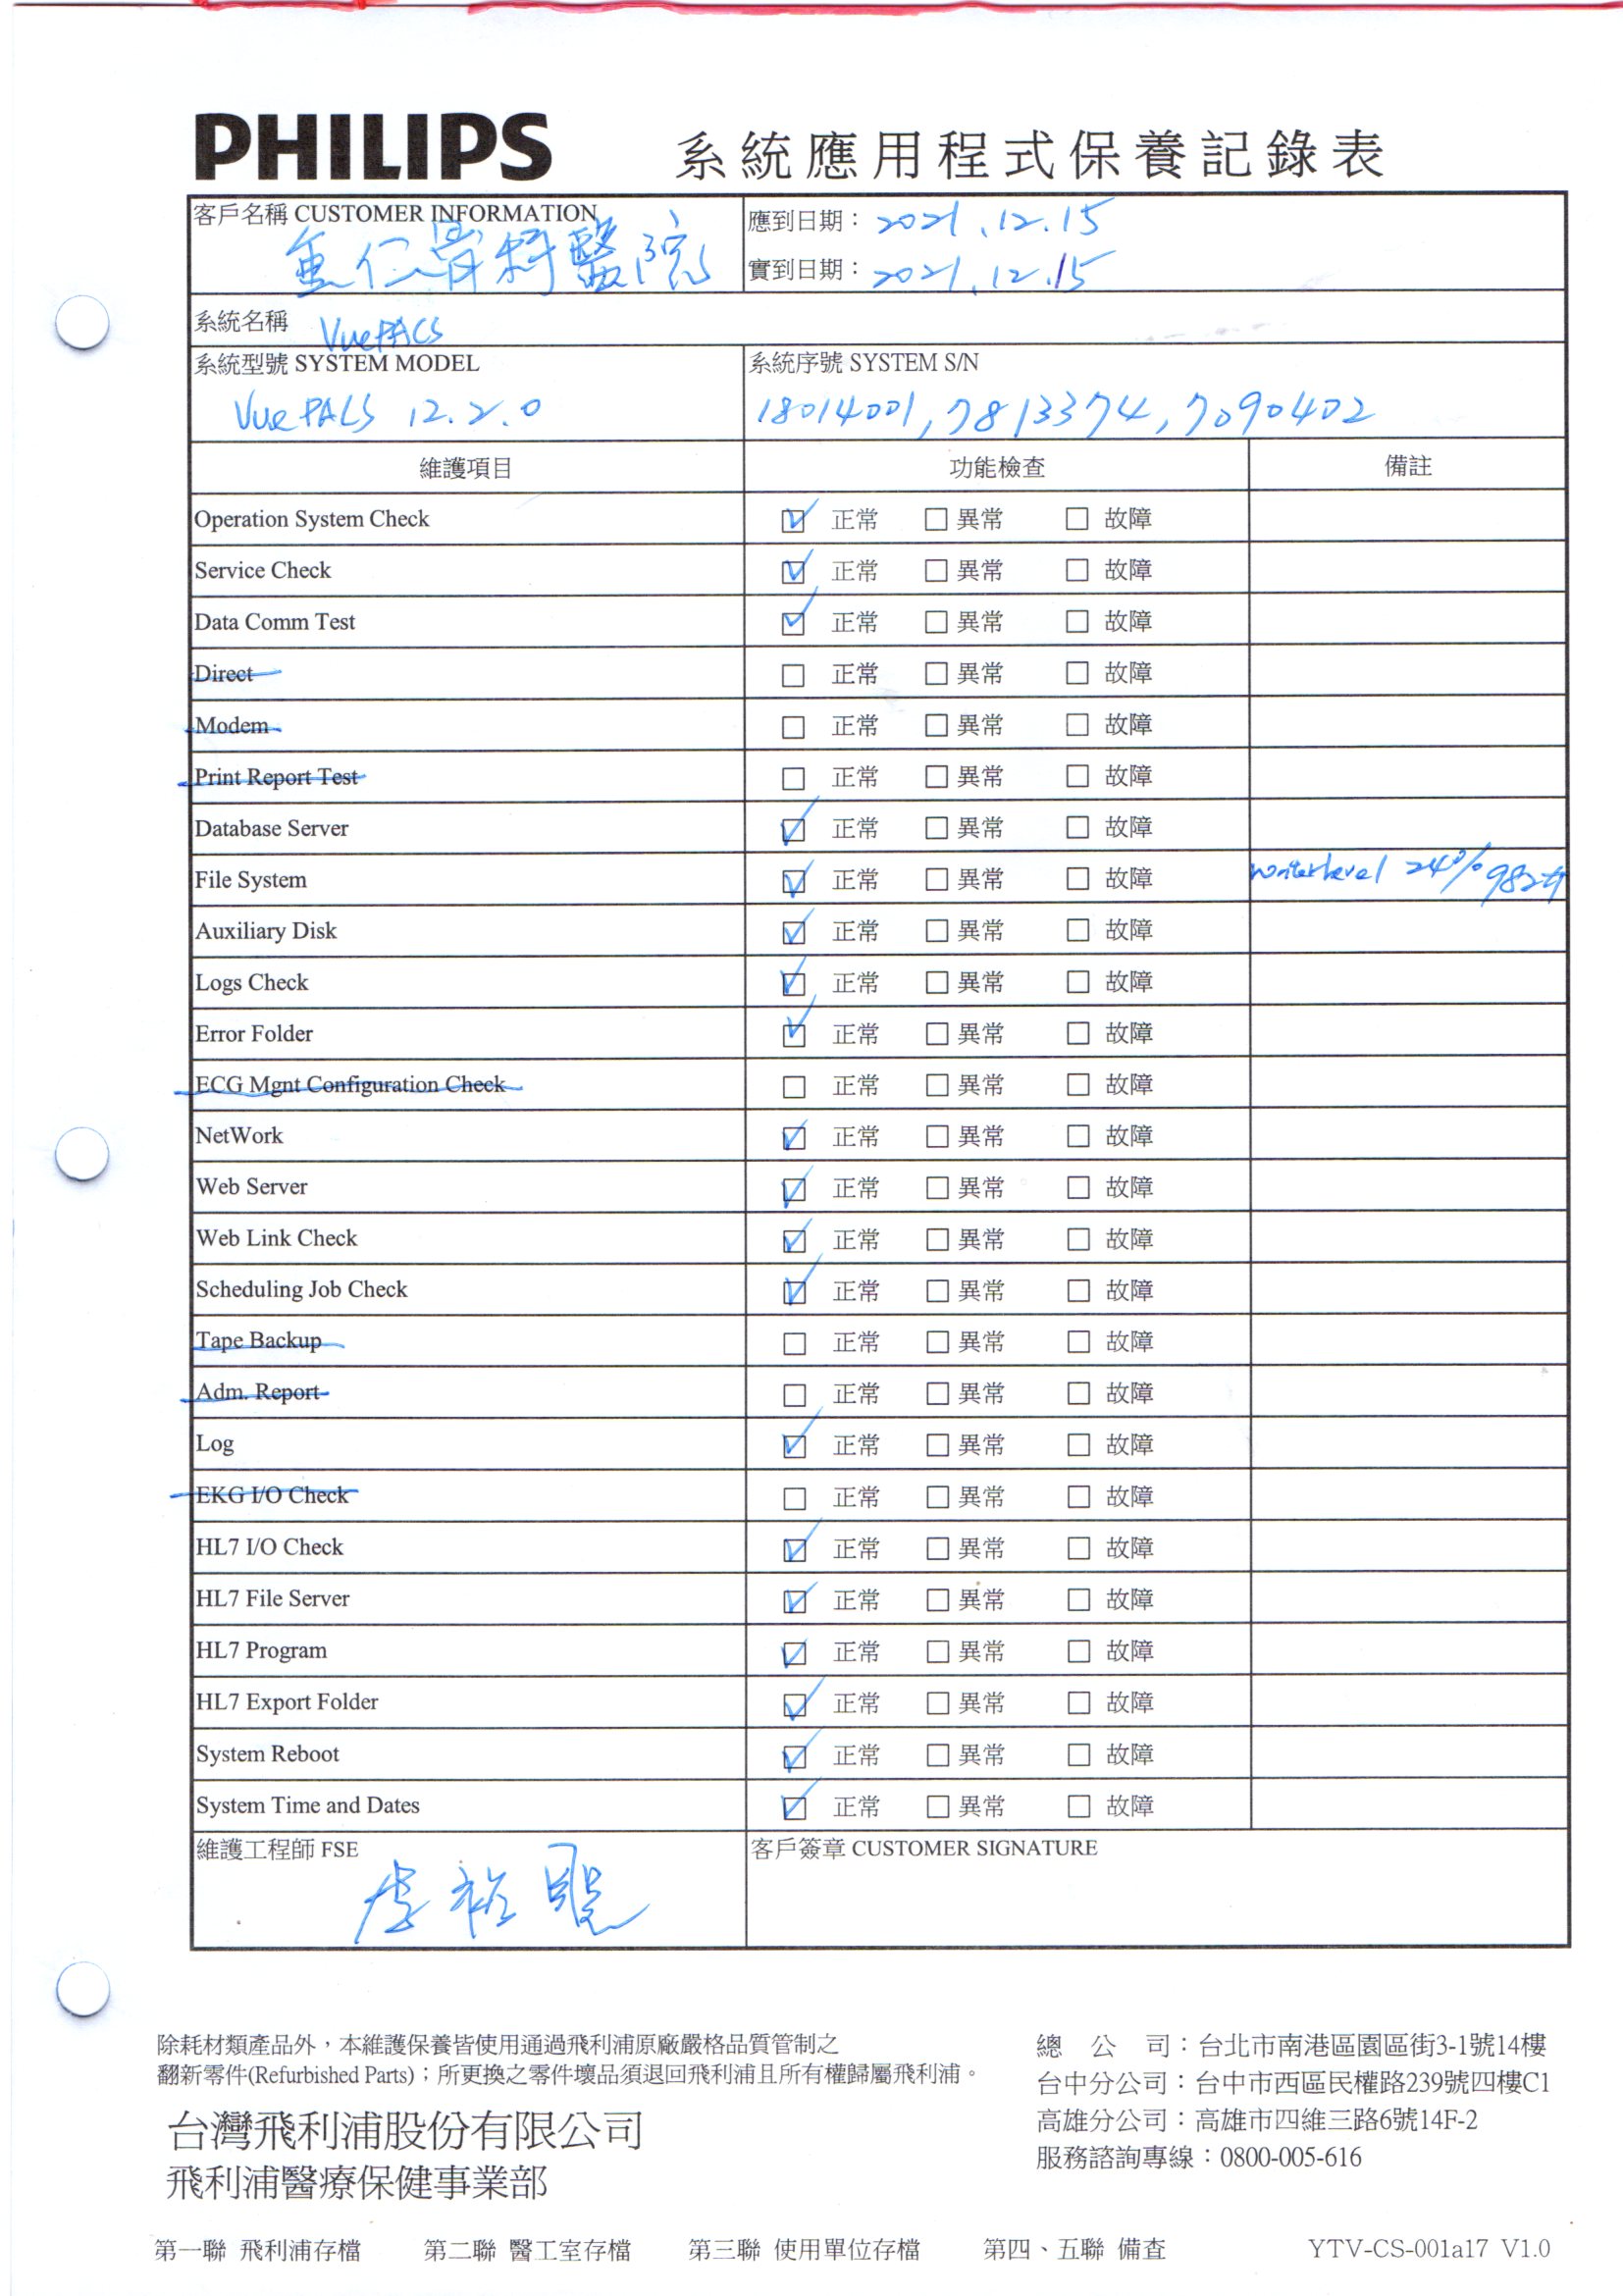 PHILIPS 系統應用程式保養記錄表
客戶名稱 CUSTOMER INFORMATION
重仁骨科醫院
應到日期： 2021.12.15
實到日期： 2021.12.15
系統名稱 VuePACS
系統型號 SYSTEM MODEL
VuePACS 12.2.0
系統序號 SYSTEM S/N
18014001, 7813374, 7090402
維護項目 功能檢查 備註
Operation System Check ☑ 正常 ☐ 異常 ☐ 故障
Service Check ☑ 正常 ☐ 異常 ☐ 故障
Data Comm Test ☑ 正常 ☐ 異常 ☐ 故障
Direct ☐ 正常 ☐ 異常 ☐ 故障
Modem ☐ 正常 ☐ 異常 ☐ 故障
Print Report Test ☐ 正常 ☐ 異常 ☐ 故障
Database Server ☑ 正常 ☐ 異常 ☐ 故障
File System ☑ 正常 ☐ 異常 ☐ 故障 level 24%
Auxiliary Disk ☑ 正常 ☐ 異常 ☐ 故障
Logs Check ☑ 正常 ☐ 異常 ☐ 故障
Error Folder ☑ 正常 ☐ 異常 ☐ 故障
ECG Mgnt Configuration Check ☐ 正常 ☐ 異常 ☐ 故障
NetWork ☑ 正常 ☐ 異常 ☐ 故障
Web Server ☑ 正常 ☐ 異常 ☐ 故障
Web Link Check ☑ 正常 ☐ 異常 ☐ 故障
Scheduling Job Check ☑ 正常 ☐ 異常 ☐ 故障
Tape Backup ☐ 正常 ☐ 異常 ☐ 故障
Adm. Report ☐ 正常 ☐ 異常 ☐ 故障
Log ☑ 正常 ☐ 異常 ☐ 故障
EKG I/O Check ☐ 正常 ☐ 異常 ☐ 故障
HL7 I/O Check ☑ 正常 ☐ 異常 ☐ 故障
HL7 File Server ☑ 正常 ☐ 異常 ☐ 故障
HL7 Program ☑ 正常 ☐ 異常 ☐ 故障
HL7 Export Folder ☑ 正常 ☐ 異常 ☐ 故障
System Reboot ☑ 正常 ☐ 異常 ☐ 故障
System Time and Dates ☑ 正常 ☐ 異常 ☐ 故障
維護工程師 FSE
客戶簽章 CUSTOMER SIGNATURE
除耗材類產品外，本維護保養皆使用通過飛利浦原廠嚴格品質管制之
翻新零件(Refurbished Parts)；所更換之零件壞品須退回飛利浦且所有權歸屬飛利浦。
台灣飛利浦股份有限公司
飛利浦醫療保健事業部
總 公 司：台北市南港區園區街3-1號14樓
台中分公司：台中市西區民權路239號四樓C1
高雄分公司：高雄市四維三路6號14F-2
服務諮詢專線：0800-005-616
第一聯 飛利浦存檔 第二聯 醫工室存檔 第三聯 使用單位存檔 第四、五聯 備查 YTV-CS-001a17 V1.0